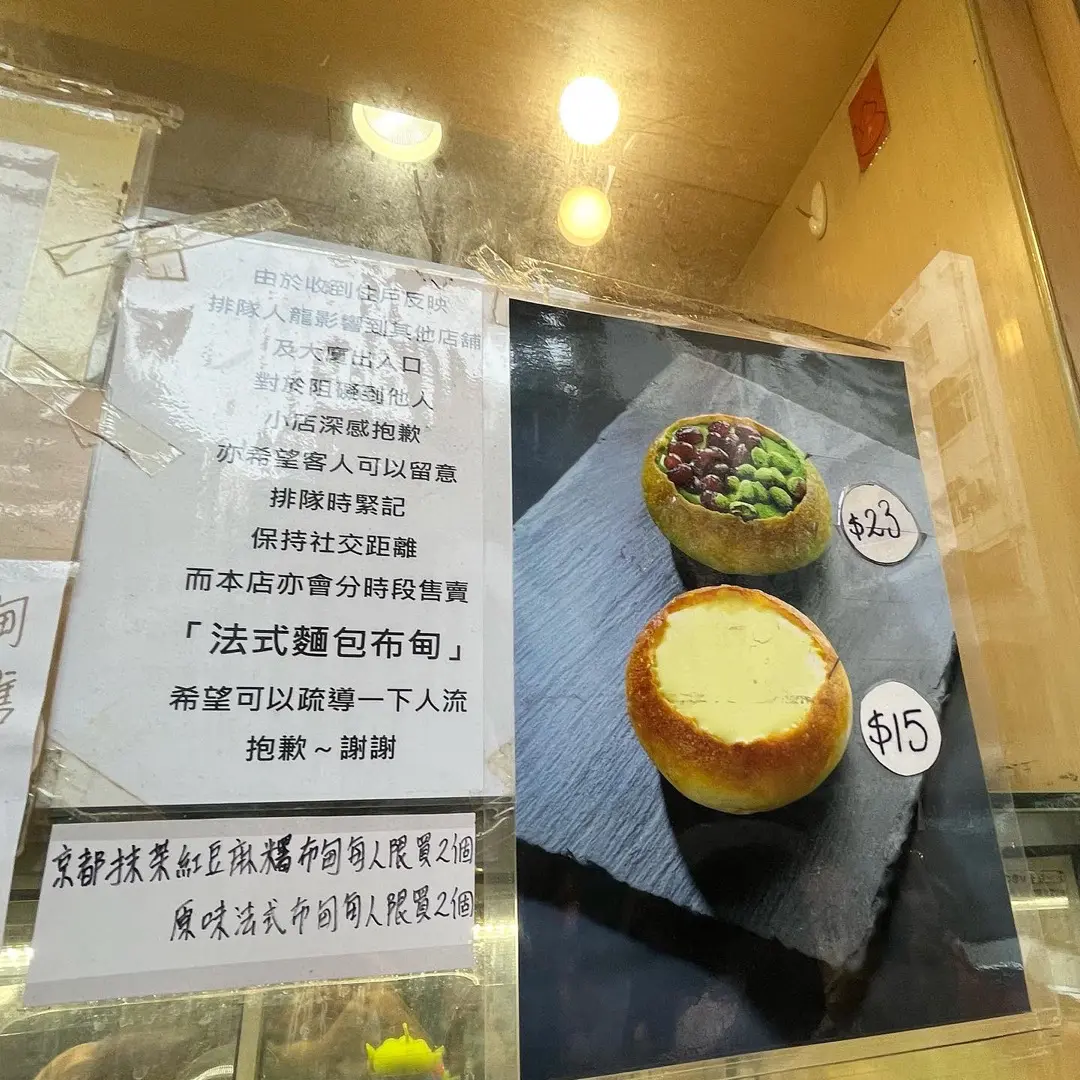 由於收到住戶反映
排隊人龍影響到其他店舖
及大廈出入口
對於阻礙到他人
小店深感抱歉
亦希望客人可以留意
排隊時緊記
保持社交距離
而本店亦會分時段售賣
「法式麵包布甸」
希望可以疏導一下人流
抱歉~謝謝
京都抹茶紅豆麻糬布甸每人限買2個
原味法式布甸每人限買2個
$23
$15
甸